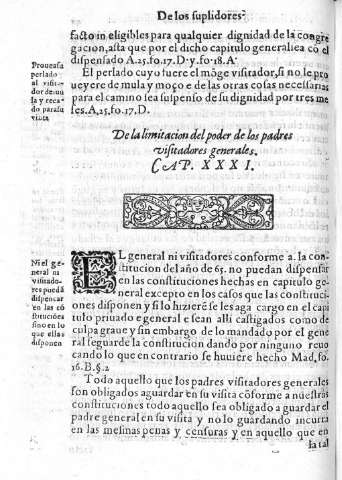 De los suplidores
facto in eligibles para qualquier dignidad de la congre
gacion, asta que por el dicho capitulo general sea cō
dispensado A.25.fo.17.D.y.fo.18.A.
Prouease
perlado
al visita-
dor de mu
la y reca-
do para su
visita
El perlado cuyo fuere el mōge visitador, si no le pro
ueyere de mula y moço e de las otras cosas necessarias
para el camino sea suspenso de su dignidad por tres me
ses. A.25.fo.17.D.
De la limitacion del poder de los padres
visitadores generales.
CAP. XXXI.
Ni el ge-
neral ni
visitado-
res puedā
dispensar
en las cō
stituciōes
sino en lo
que ellas
disponen
EL general ni visitadores conforme a. la con-
stitucion del año de 65. no puedan dispensar
en las constituciones hechas en capitulo ge-
neral excepto en los casos que las constituci-
ones disponen y si lo hiziere se les aga cargo en el capi
tulo priuado e general e sean alli castigados como de
culpa graue y sin embargo de lo mandado por el gene
ral se guarde la constitucion dando por ninguno reuo
cando lo que en contrario se huuiere hecho Mad. fo.
16.B.§.2
Todo aquello que los padres visitadores generales
son obligados aguardar en su visita cōforme a nuestras
constituciones todo aquello sea obligado a guardar el
padre general en su visita y no lo guardando incurra
en las mesmas penas y censuras y en aquello que en
la tal